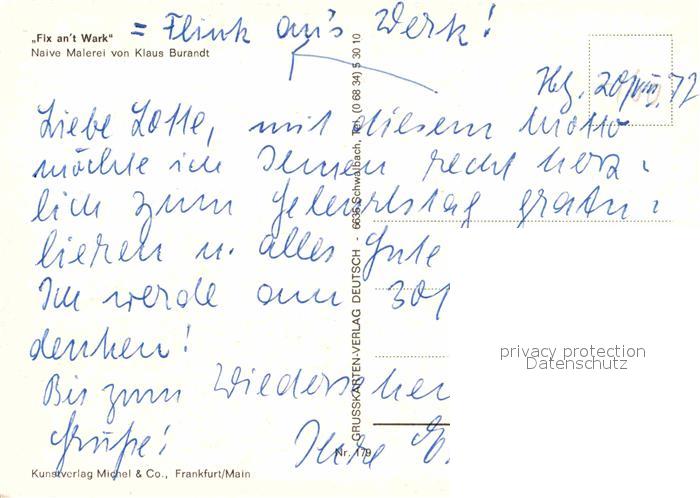 „Fix an't Wark“ = Flink an's Werk!
Naive Malerei von Klaus Burandt
Hbg. 20/VIII. 77
Liebe Lotte, mit diesem Motto
möchte ich Ihnen recht herz-
lich zum Geburtstag gratu-
lieren u. alles Gute
Ich werde am 30/
denken!
Bis zum Wiedersehen
Grüße! Ihre
GRUSSKARTEN-VERLAG DEUTSCH - 6635 Schwalbach, Tel. (0 68 34) 5 30 10
Nr. 179
Kunstverlag Michel & Co., Frankfurt/Main
privacy protection
Datenschutz